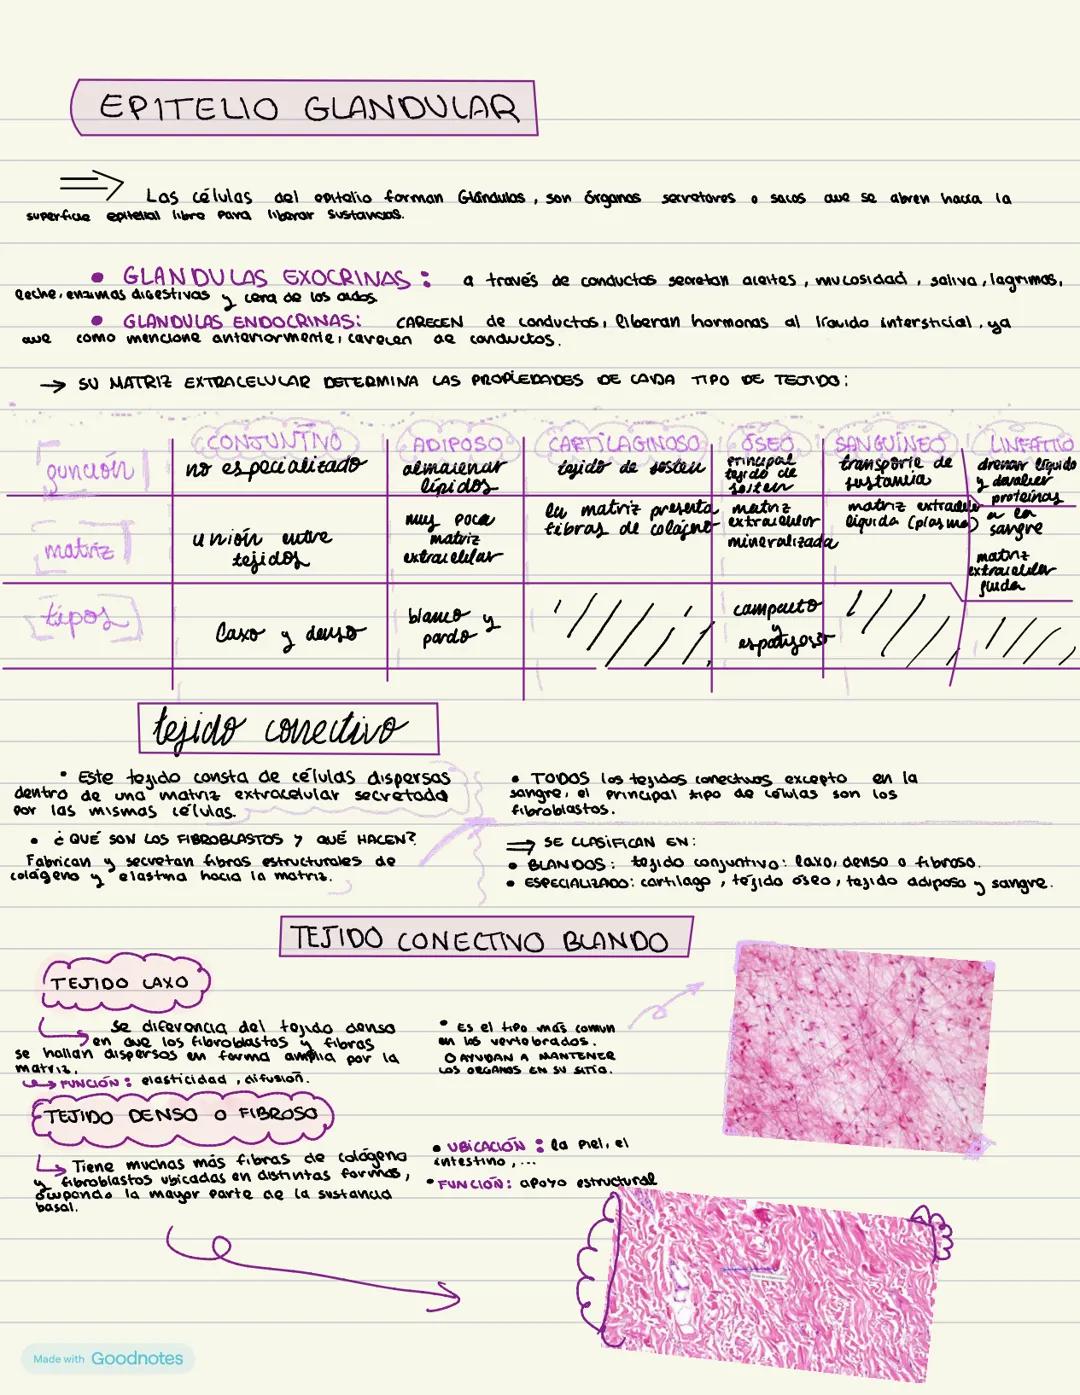 EPITELIO GLANDULAR
Las células del epitelio forman Glándulas, son órganos secretores o sacos que se abren hacia la
superficie epitelial libre para liberar sustancias.
• GLANDULAS EXOCRINAS: a través de conductos secretan aceites, mucosidad, saliva, lagrimas,
leche, enzimas digestivas y cera de los oidos
• GLANDULAS ENDOCRINAS: CARECEN de conductos, liberan hormonas al líquido intersticial, ya
que como mencione anteriormente, carecen de conductos.
→ SU MATRIZ EXTRACELULAR DETERMINA LAS PROPIEDADES DE CADA TIPO DE TEJIDO:
CONJUNTIVO ADIPOSO CARTILAGINOSO ÓSEO SANGUÍNEO LINFATICO
función no especializado almacenar lípidos tejido de sosten principal tejido de sosten transporte de sustancia drenar líquido y devolver proteínas a la sangre
matriz unión entre tejidos muy poca matriz extracelular la matriz presenta fibras de colágeno matriz extracelular mineralizada matriz extracelular liquida (plasma) matriz extracelular fluida
tipos Laxo y denso blanco y pardo compacto y esponjoso
tejido conectivo
• Este tejido consta de células dispersas
dentro de una matriz extracelular secretada
por las mismas células.
• ¿QUÉ SON LOS FIBROBLASTOS Y QUÉ HACEN?
Fabrican y secretan fibras estructurales de
colágeno y elastina hacia la matriz.
• TODOS los tejidos conectivos excepto en la
sangre, el principal tipo de células son los
fibroblastos.
⇒ SE CLASIFICAN EN:
• BLANDOS: tejido conjuntivo: laxo, denso o fibroso.
• ESPECIALIZADO: cartilago, tejido óseo, tejido adiposo y sangre.
TEJIDO CONECTIVO BLANDO
TEJIDO LAXO
Se diferencia del tejido denso
en que los fibroblastos y fibras
se hallan dispersos en forma amplia por la
matriz.
FUNCIÓN: elasticidad, difusión.
• Es el tipo más comun
en los vertebrados.
O AYUDAN A MANTENER
LOS ORGANOS EN SU SITIO.
TEJIDO DENSO O FIBROSO
Tiene muchas más fibras de colágeno
y fibroblastos ubicadas en distintas formas,
ocupando la mayor parte de la sustancia
basal.
• UBICACIÓN: la piel, el
intestino,...
• FUNCIÓN: apoyo estructural
Made with Goodnotes